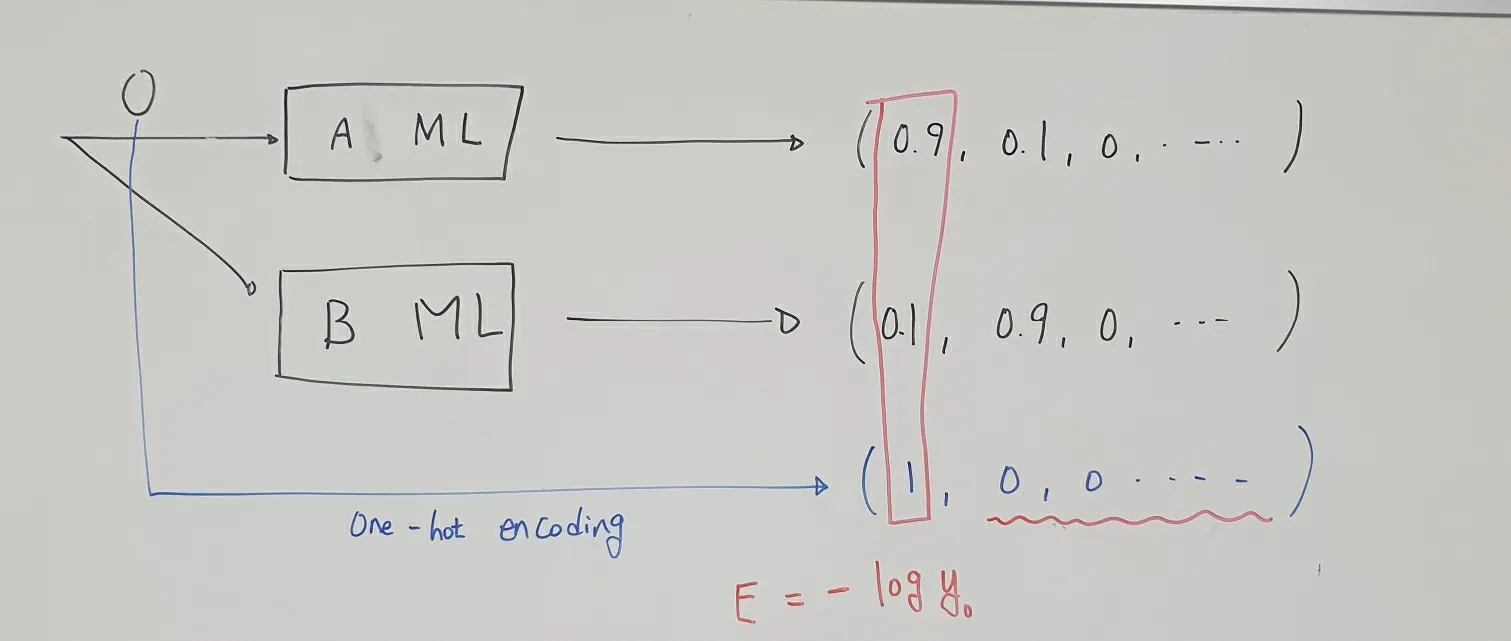 0
A ML
(0.9, 0.1, 0, . -...)
B ML
(0.1, 0.9, 0, ---)
(1, 0, 0 - - - - -)
One-hot encoding
E = - log y₀